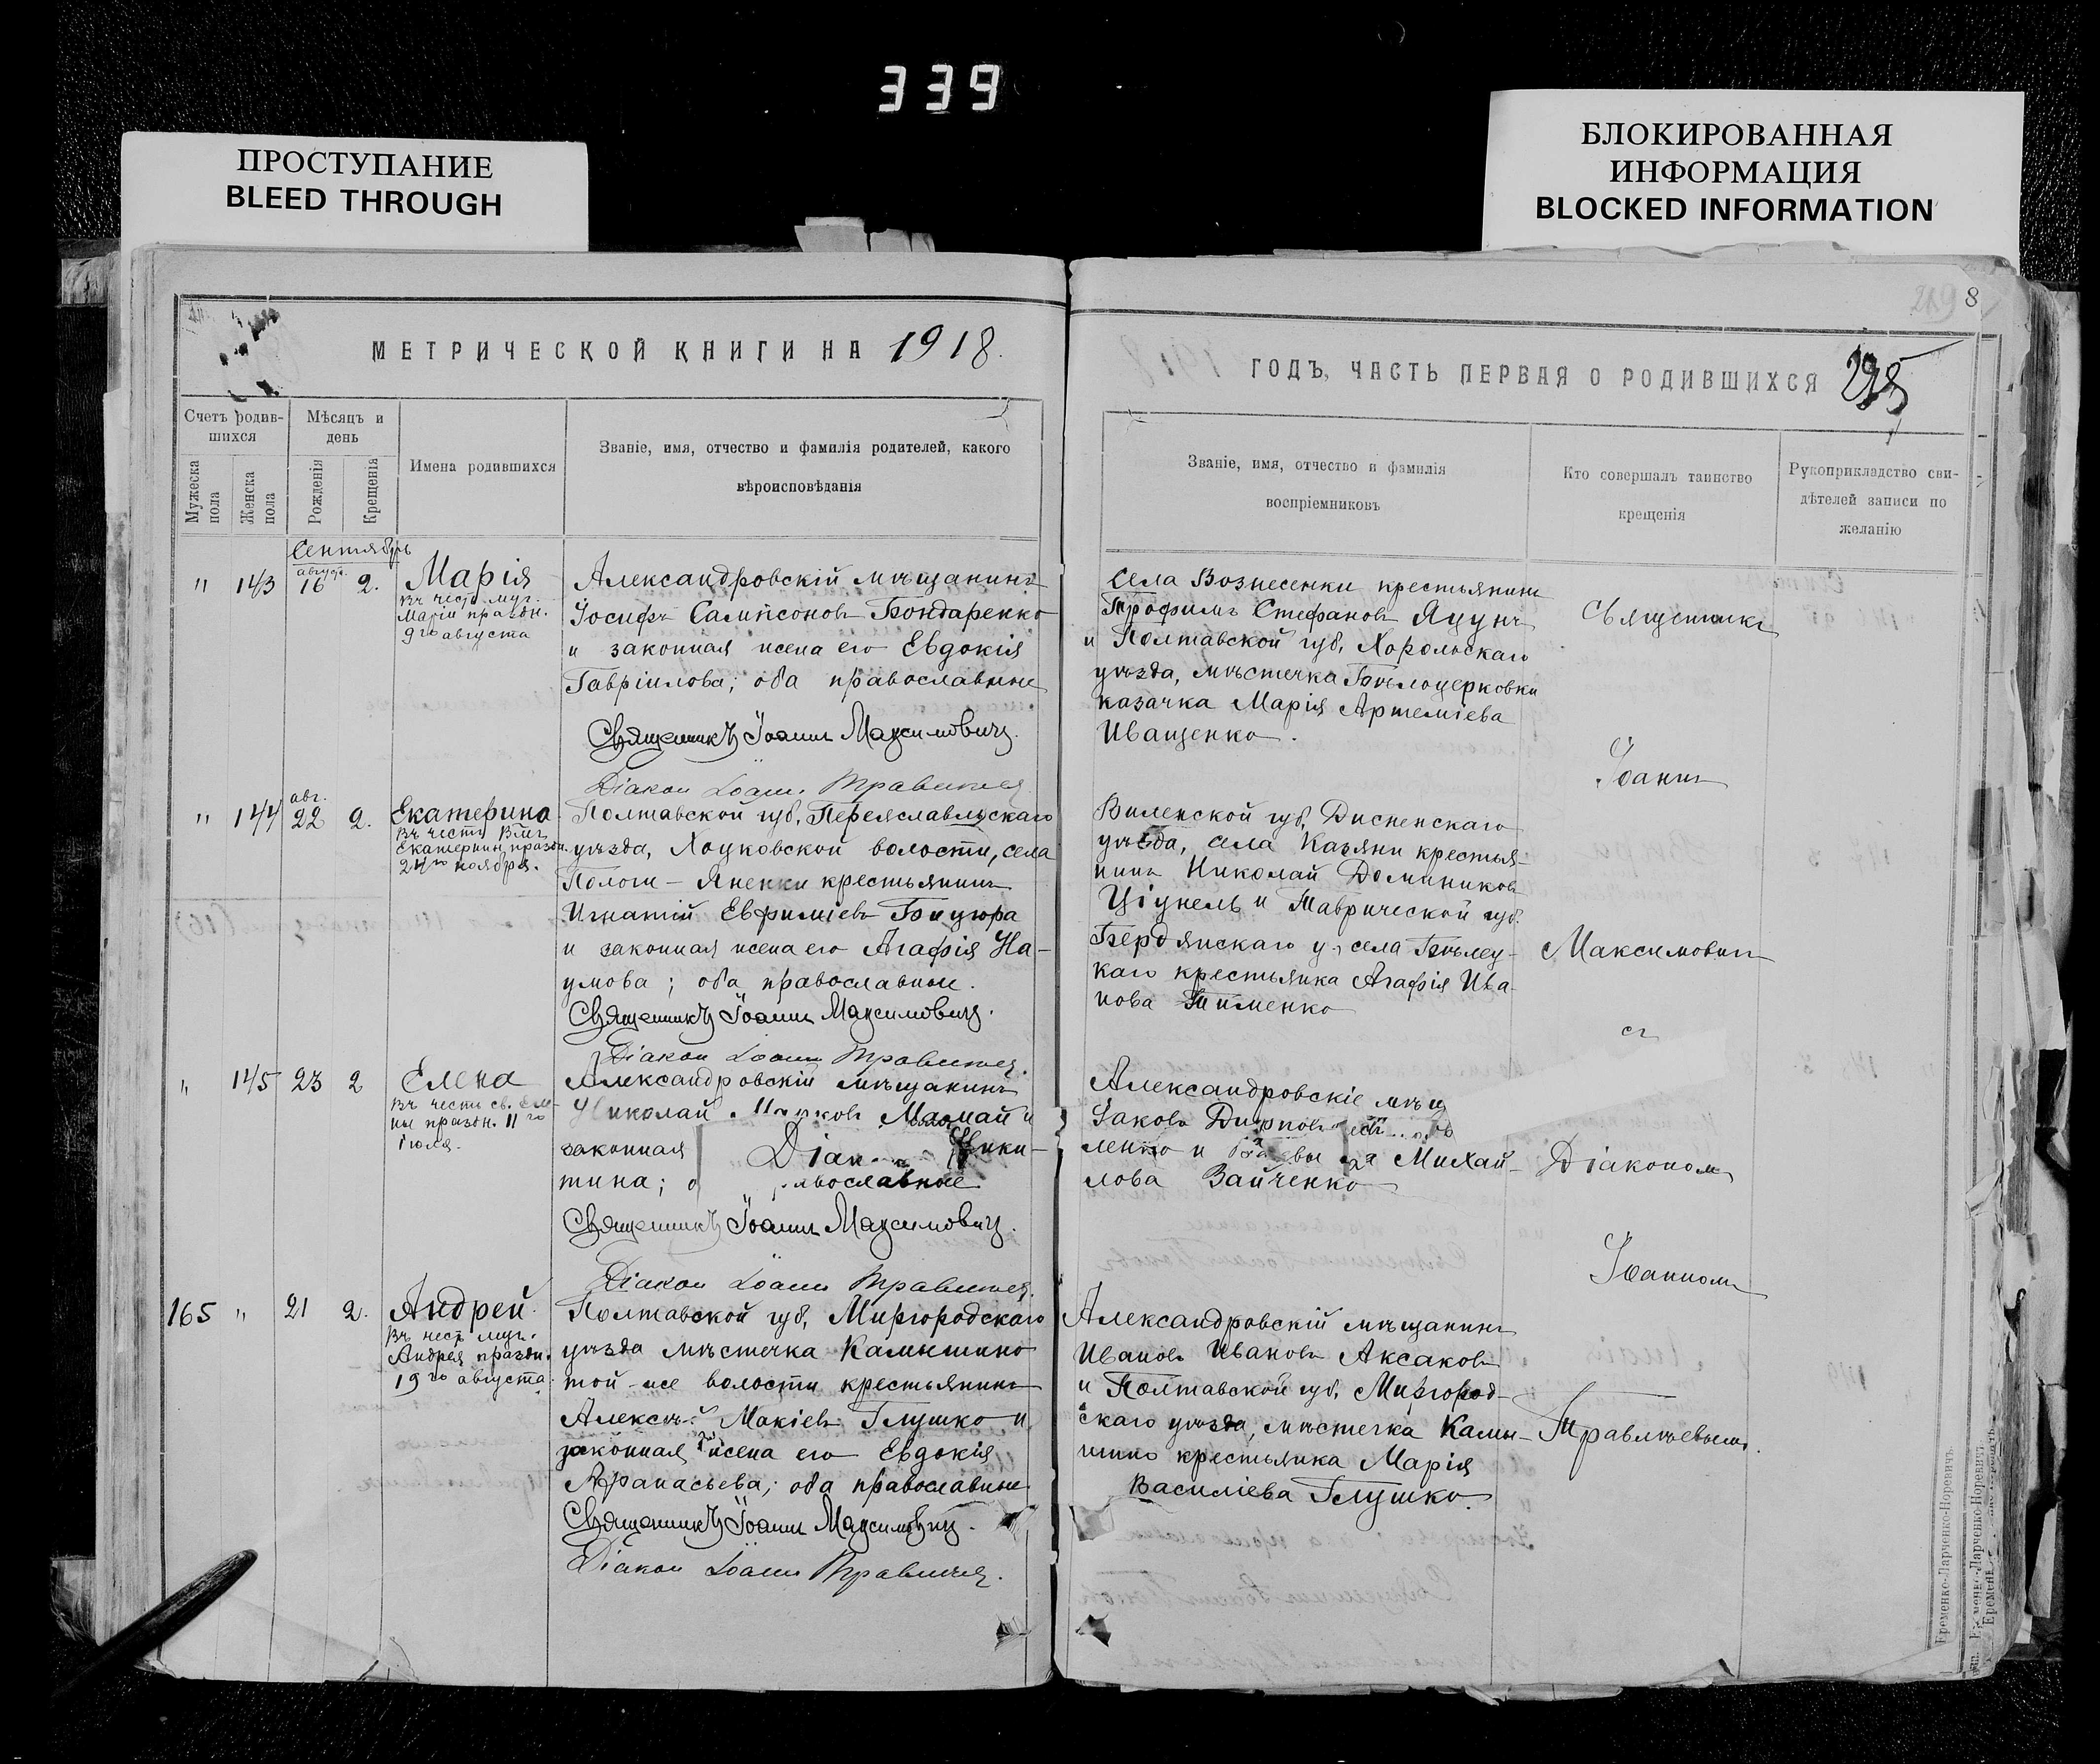 339
ПРОСТУПАНИЕ
BLEED THROUGH
БЛОКИРОВАННАЯ
ИНФОРМАЦИЯ
BLOCKED INFORMATION
МЕТРИЧЕСКОЙ КНИГИ НА 1918.
Счетъ родив-
шихся
Мѣсяцъ и
день
Мужеска пола
Женска пола
Рожденія
Крещенія
Имена родившихся
Званіе, имя, отчество и фамилія родителей, какого
вѣроисповѣданія
Сентябрь
" 143
август.
16 2.
Марія
Въ честь муч.
Маріи празdн.
9го августа
Александровскій мѣщанинъ
Іосифъ Сампсоновъ Бондаренко
и законная жена его Евдокія
Гавріилова; оба православные
Священникъ Іоаннъ Максимовичъ.
Діаконъ Іоаннъ
" 144
авг.
22 2.
Екатерина
Въ честь Вмч.
Екатерины, праздн.
24го ноября.
Полтавской губ. Переяславльскаго
уѣзда, Хоцковской волости, села
Пологи-Яненки крестьянинъ
Игнатій Евфиміевъ Бицюра
и законная жена его Агафія На-
умова; оба православные.
Священникъ Іоаннъ Максимовичъ.
Діаконъ Іоаннъ
" 145 23 2
Елена
Въ честь св. Еле-
ны праздн. 11го
Іюля.
Александровскій мѣщанинъ
Николай Мамай и
законная Ники-
тина;
Священникъ Іоаннъ Максимовичъ.
Діаконъ Іоаннъ
165 " 21 2.
Андрей
Въ честь муч.
Андрея праздн.
19го августа.
Полтавской губ. Миргородскаго
уѣзда мѣстечка Камышино
той-же волости крестьянинъ
Алексѣй Мокіевъ Глушко и
законная жена его Евдокія
Афанасьева; оба православные
Священникъ Іоаннъ Максимовичъ.
Діаконъ Іоаннъ
8
ГОДЪ, ЧАСТЬ ПЕРВАЯ О РОДИВШИХСЯ
Званіе, имя, отчество и фамилія
воспріемниковъ
Кто совершалъ таинство
крещенія
Рукоприкладство сви-
дѣтелей записи по
желанію
Села Вознесенки крестьянинъ
Трофимъ Стефановъ Яцунъ
и Полтавской губ. Хорольскаго
уѣзда, мѣстечка Бѣлоцерковки
казачка Марія Артеміева
Иващенко.
Виленской губ. Дисненскаго
уѣзда, села Казяни крестья-
нинъ Николай Доминиковъ
Ціунель и Таврической губ.
Бердянскаго у. села
крестьянка Агафія Ива-
нова Тименко
Александровскіе
Іаковъ
ленко и Михай-
лова Зайченко
Александровскій мѣщанинъ
Ивановъ Ивановъ Аксаковъ
и Полтавской губ. Миргород-
скаго уѣзда, мѣстечка Камы-
шино крестьянка Марія
Василіева Глушко.
Священникъ
Іоаннъ
Максимовичъ
съ
Діакономъ
Іоанномъ
Травлѣевымъ.
Еременко-Ларченко-Норевичъ.